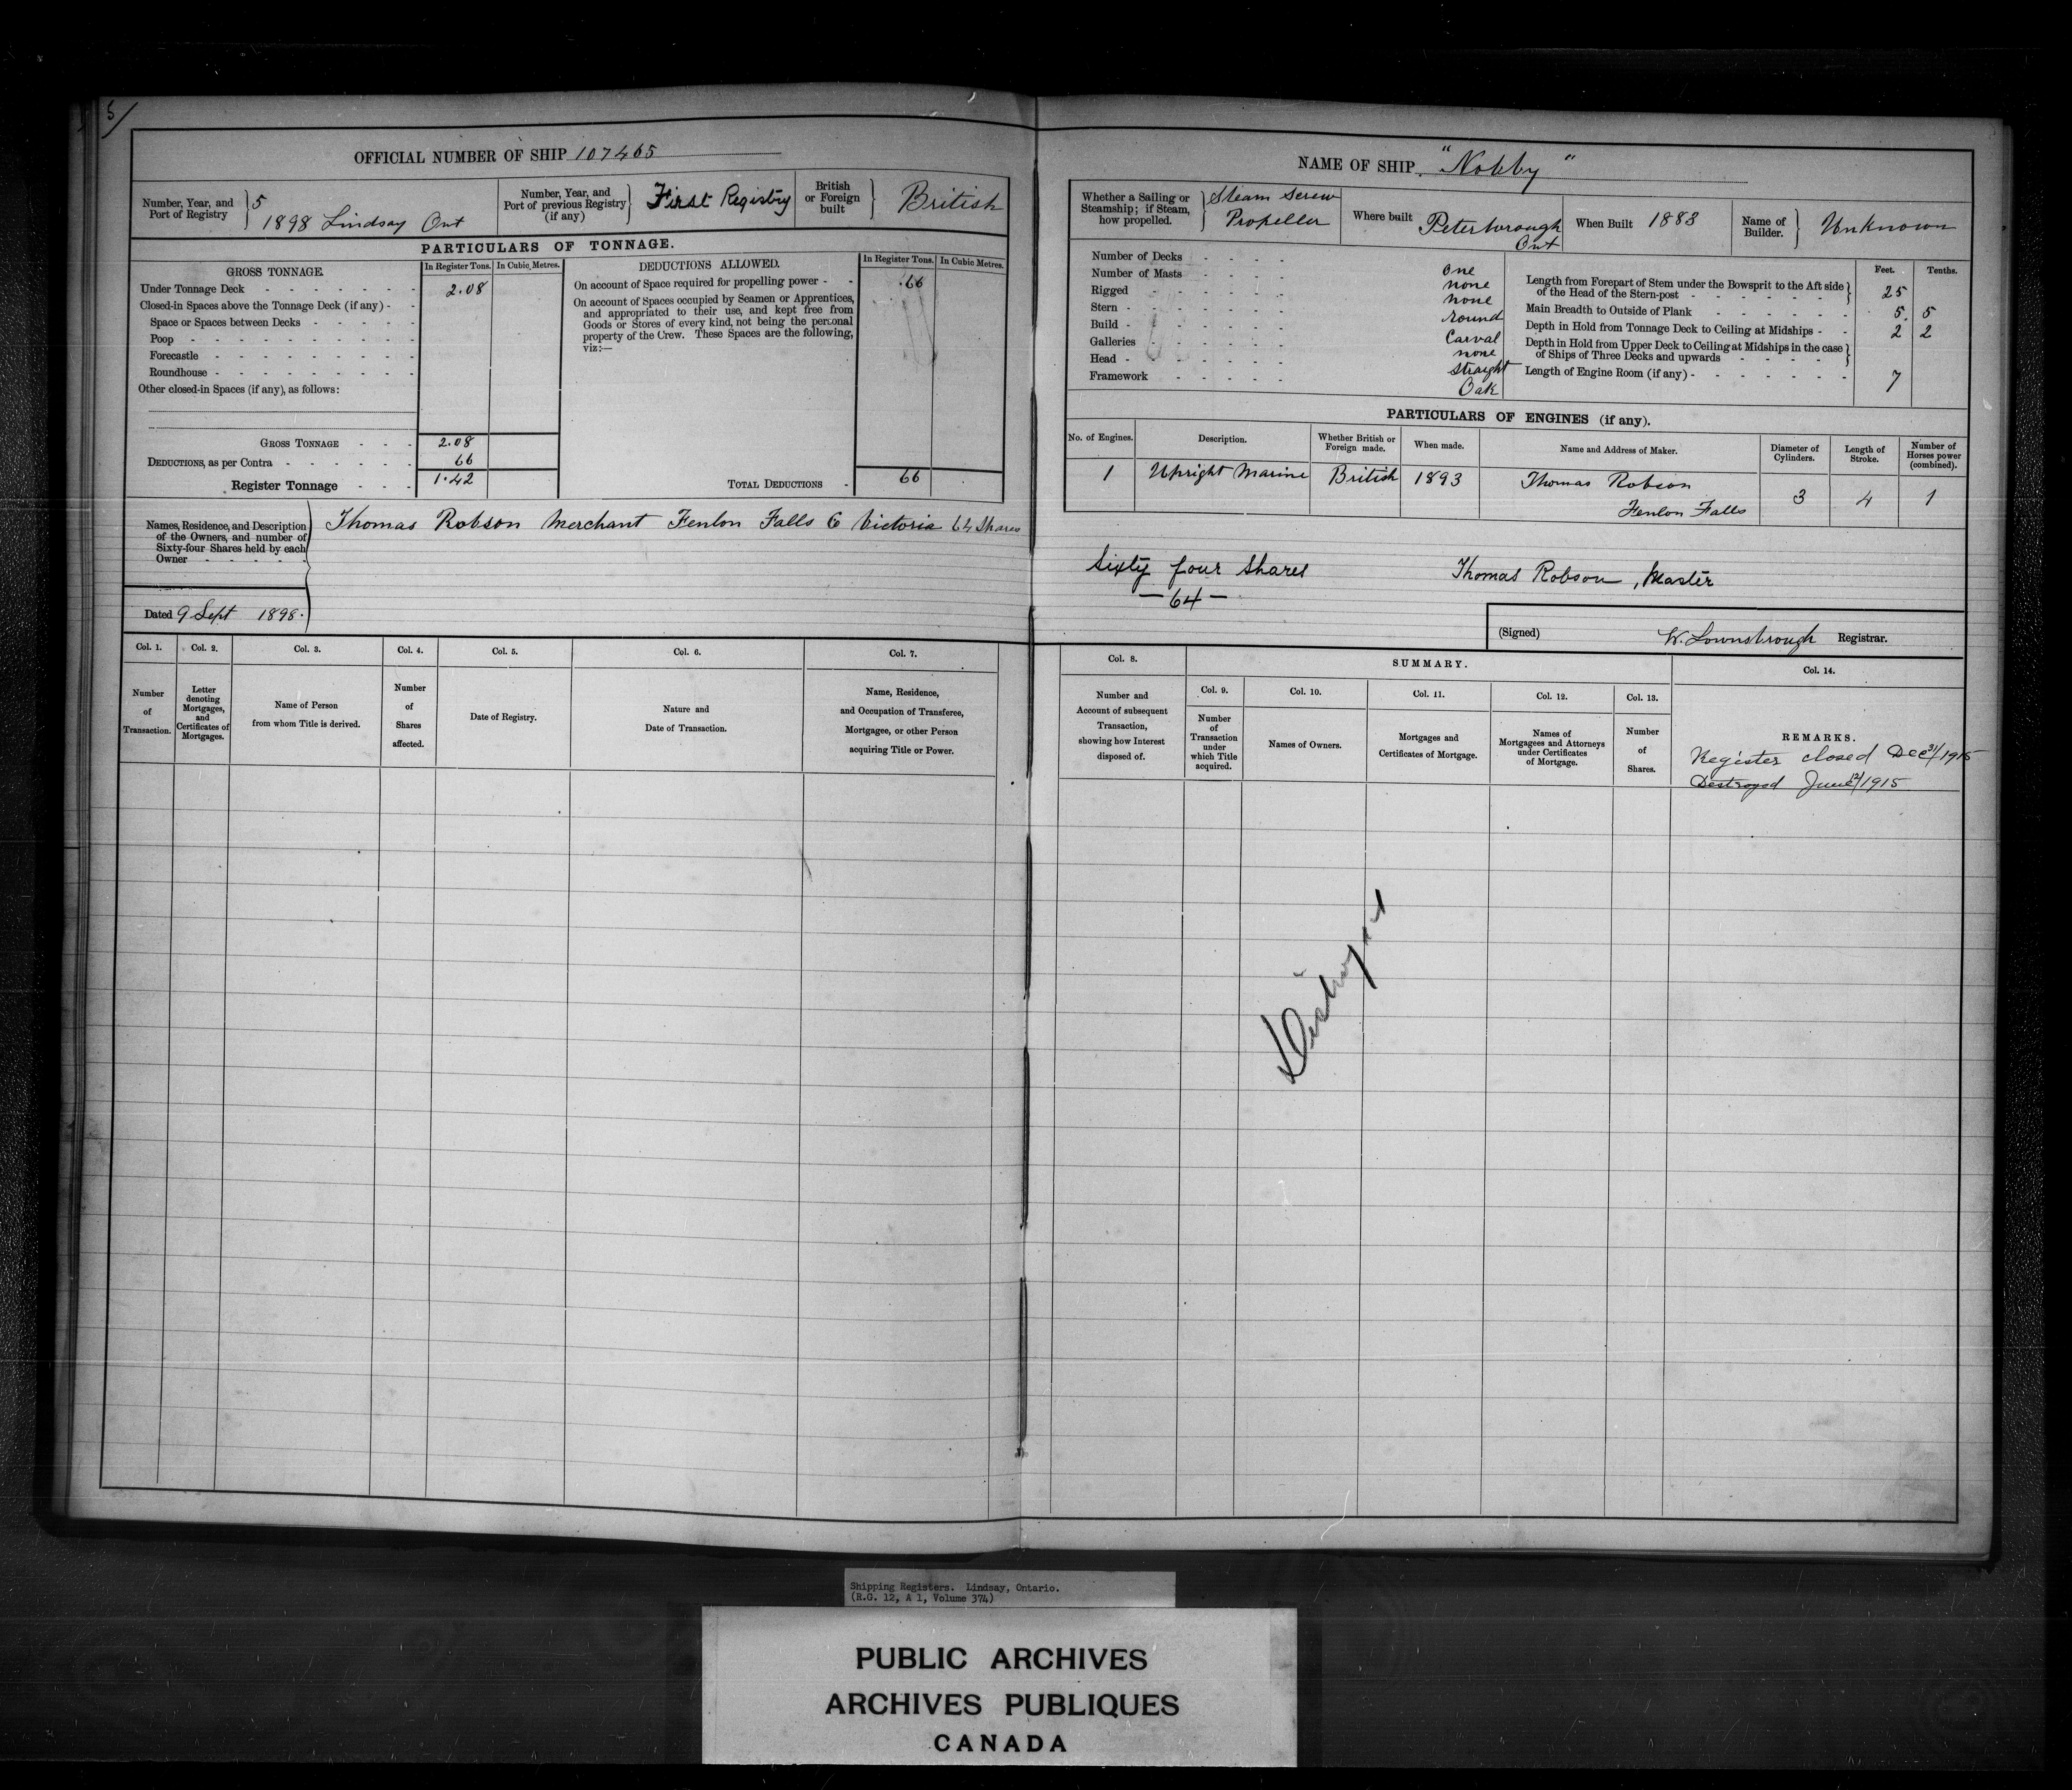 5/
OFFICIAL NUMBER OF SHIP 107465
Number, Year, and Port of Registry } 5 1898 Lindsay Ont
Number, Year, and Port of previous Registry (if any) } First Registry
British or Foreign built } British
PARTICULARS OF TONNAGE.
GROSS TONNAGE. In Register Tons. In Cubic Metres.
Under Tonnage Deck - - - - - - - 2.08
Closed-in Spaces above the Tonnage Deck (if any) - -
Space or Spaces between Decks - - - - -
Poop - - - - - - - - - - -
Forecastle - - - - - - - - - -
Roundhouse - - - - - - - - - -
Other closed-in Spaces (if any), as follows:
GROSS TONNAGE - - - 2.08
DEDUCTIONS, as per Contra - - - - - - 66
Register Tonnage - - - 1.42
DEDUCTIONS ALLOWED. In Register Tons. In Cubic Metres.
On account of Space required for propelling power - - .66
On account of Spaces occupied by Seamen or Apprentices,
and appropriated to their use, and kept free from
Goods or Stores of every kind, not being the personal
property of the Crew. These Spaces are the following,
viz:—
TOTAL DEDUCTIONS - 66
Names, Residence, and Description
of the Owners, and number of
Sixty-four Shares held by each
Owner - - - - -
Thomas Robson Merchant Fenlon Falls Co Victoria 64 Shares
Dated 9 Sept 1898.
Col. 1. Col. 2. Col. 3. Col. 4. Col. 5. Col. 6. Col. 7.
Number of Transaction.
Letter denoting Mortgages, and Certificates of Mortgages.
Name of Person from whom Title is derived.
Number of Shares affected.
Date of Registry.
Nature and Date of Transaction.
Name, Residence, and Occupation of Transferee, Mortgagee, or other Person acquiring Title or Power.
NAME OF SHIP. "Nobby"
Whether a Sailing or Steamship; if Steam, how propelled. } Steam Screw Propeller
Where built Peterborough Ont
When Built 1883
Name of Builder. } Unknown
Number of Decks - - - - One
Number of Masts - - - - none
Rigged - - - - - none
Stern - - - - - round
Build - - - - - Carval
Galleries - - - - - none
Head - - - - - straight
Framework - - - - - Oak
Feet. Tenths.
Length from Forepart of Stem under the Bowsprit to the Aft side of the Head of the Stern-post - - - - } 25
Main Breadth to Outside of Plank - - - - - - 5. 5
Depth in Hold from Tonnage Deck to Ceiling at Midships - - 2 2
Depth in Hold from Upper Deck to Ceiling at Midships in the case of Ships of Three Decks and upwards - - - - }
Length of Engine Room (if any) - - - - - - - 7
PARTICULARS OF ENGINES (if any).
No. of Engines. Description. Whether British or Foreign made. When made. Name and Address of Maker. Diameter of Cylinders. Length of Stroke. Number of Horses power (combined).
1 Upright Marine British 1893 Thomas Robson Fenlon Falls 3 4 1
Sixty four Shares Thomas Robson, Master
— 64 —
(Signed) W. Lownsbrough Registrar.
Col. 8. SUMMARY. Col. 14.
Col. 9. Col. 10. Col. 11. Col. 12. Col. 13.
Number and Account of subsequent Transaction, showing how Interest disposed of.
Number of Transaction under which Title acquired.
Names of Owners.
Mortgages and Certificates of Mortgage.
Names of Mortgagees and Attorneys under Certificates of Mortgage.
Number of Shares.
REMARKS.
Register closed Dec 31/1915
Destroyed June 12/1915
Destroyed
Shipping Registers. Lindsay, Ontario.
(R.G. 12, A 1, Volume 374)
PUBLIC ARCHIVES
ARCHIVES PUBLIQUES
CANADA